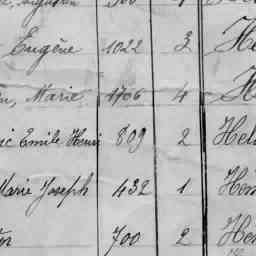 Eugène 1022 3 He
Marie 1706 4 H
Emile Henri 809 2 Hel
Marie Joseph 432 1 Hém
700 2 Hé